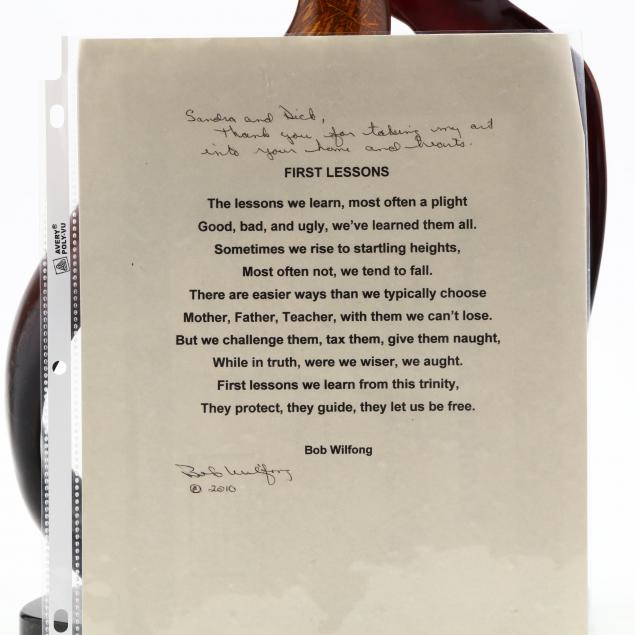 Sandra and Dick,
Thank you for taking my art
into your home and hearts.
FIRST LESSONS
The lessons we learn, most often a plight
Good, bad, and ugly, we've learned them all.
Sometimes we rise to startling heights,
Most often not, we tend to fall.
There are easier ways than we typically choose
Mother, Father, Teacher, with them we can't lose.
But we challenge them, tax them, give them naught,
While in truth, were we wiser, we aught.
First lessons we learn from this trinity,
They protect, they guide, they let us be free.
Bob Wilfong
Bob Wilfong
© 2010
AVERY®
POLY-VU